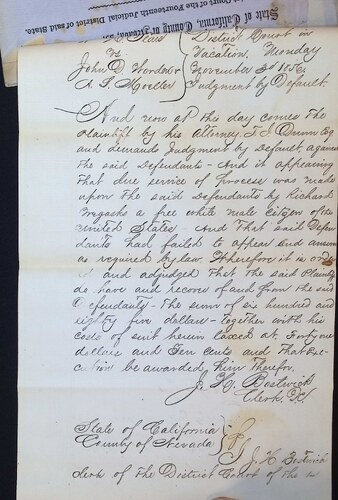 State of California, County of Nevada, ss.
of the Fourteenth Judicial District of said State.
District Court in
Vs Vacation, Monday
John D Worden & November 3d 1856
A. F. Hoeller Judgment by Default.
And now at this day comes the
plaintiff by his Attorney, J. I Dunn Esq
and demands Judgment by Default against
the said Defendants - And it appearing
that due service of process was made
upon the said Defendants by Richard
a free white male citizen of the
United States - And that said Defen
dants had failed to appear and answer
as required by law. Wherefore it is ord
d and adjudged that the said Plaintiff
do have and recover of and from the said
Defendants - the sum of six hundred and
eighty five dollars - together with his
costs of suit herein taxed at Forty one
dollars and Ten cents and that Exe-
cution be awarded him therefor.
J. H. Bostwick
Clerk.
State of California
County of Nevada } J. H. Bostwick
clerk of the District Court of the